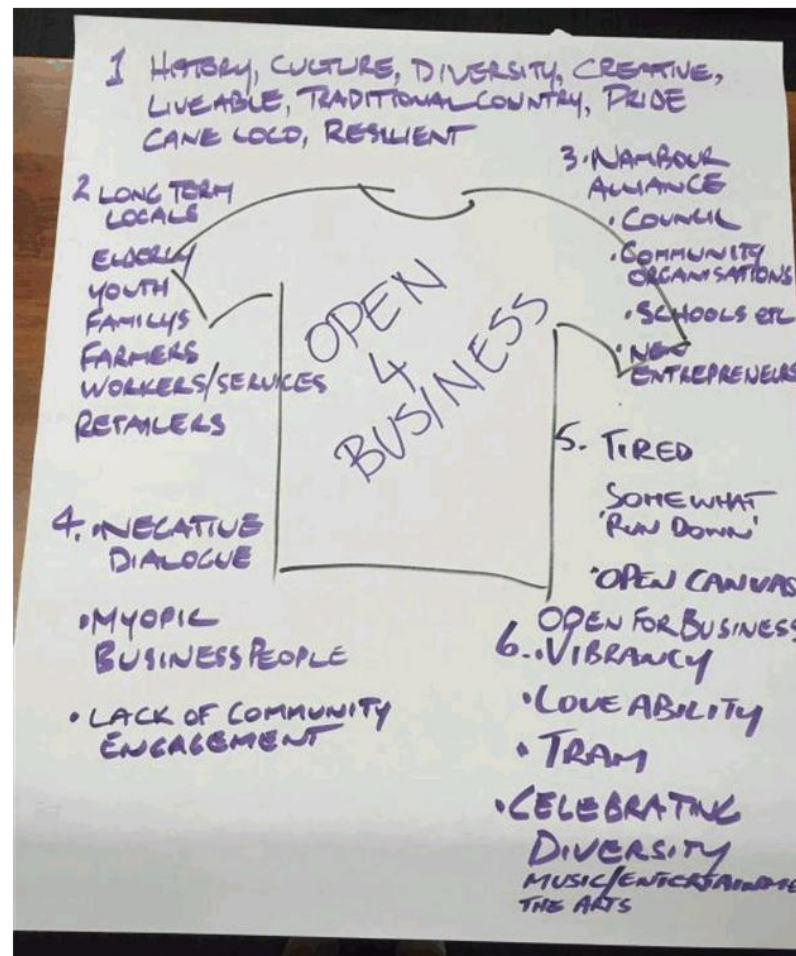 1 HISTORY, CULTURE, DIVERSITY, CREATIVE,
LIVEABLE, TRADITIONAL COUNTRY, PRIDE
CANE LOCO, RESILIENT
2 LONG TERM
LOCALS
ELDERLY
YOUTH
FAMILYS
FARMERS
WORKERS/SERVICES
RETAILERS
3. NAMBOUR
ALLIANCE
• COUNCIL
• COMMUNITY
ORGANISATIONS
• SCHOOLS ETC
• NEW
ENTREPRENEURS
OPEN
4
BUSINESS
4. • NEGATIVE
DIALOGUE
• MYOPIC
BUSINESS PEOPLE
• LACK OF COMMUNITY
ENGAGEMENT
5. TIRED
SOMEWHAT
'RUN DOWN'
• OPEN CANVAS
OPEN FOR BUSINESS
6. • VIBRANCY
• LOVE ABILITY
• TRAM
• CELEBRATING
DIVERSITY
MUSIC/ENTERTAINME
THE ARTS